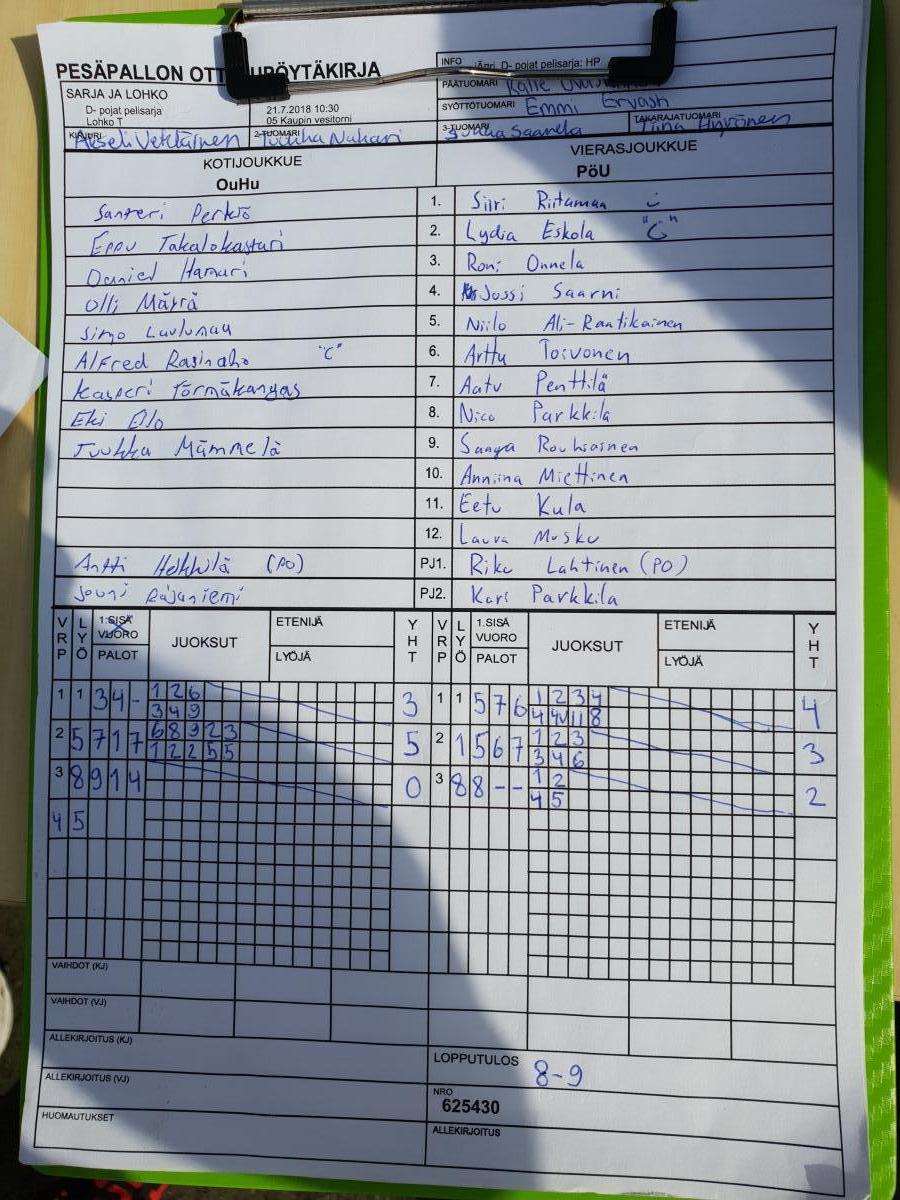 PESÄPALLON
INFO D- pojat pelisarja: HP
SARJA JA LOHKO
D- pojat pelisarja
Lohko T
21.7.2018 10:30
05 Kaupin vesitorni
PÄÄTUOMARI Kalle
SYÖTTÖTUOMARI Emmi Ervasti
KIRJURI
2-TUOMARI Tuukka
3-TUOMARI Jukka
TAKARAJATUOMARI Tiina Hyvönen
KOTIJOUKKUE
OuHu
VIERASJOUKKUE
PöU
Santeri 1. Siiri
Eppu Takalokastari 2. Lydia Eskola "C"
Daniel Hamari 3. Roni Onnela
Olli Määttä 4. Jussi Saarni
Simo 5. Niilo Ali-Rantikainen
Alfred Rasinaho "C" 6. Arttu Toivonen
Kasperi Törmäkangas 7. Aatu Penttilä
Eki 8. Nico Parkkila
Tuukka Mämmelä 9. Sanga Rouhiainen
10. Anniina Miettinen
11. Eetu Kula
12. Laura
Antti Heikkilä (PO) PJ1. Riku Lahtinen (PO)
Jouni Rajaniemi PJ2. Kari Parkkila
VRP LYÖ 1.SISÄ VUORO PALOT JUOKSUT ETENIJÄ LYÖJÄ YHT VRP LYÖ 1.SISÄ VUORO PALOT JUOKSUT ETENIJÄ LYÖJÄ YHT
1 1 3 4 - 1 2 6 3 1 1 5 7 6 1 2 3 4 4
3 4 9 4 4 8
2 5 7 1 7 6 8 9 2 3 5 2 1 5 6 7 1 2 3 3
1 2 2 5 5 3 4 6
3 8 9 1 4 0 3 8 8 - - 1 2 2
4 5
4 5
VAIHDOT (KJ)
VAIHDOT (VJ)
ALLEKIRJOITUS (KJ)
LOPPUTULOS 8-9
ALLEKIRJOITUS (VJ)
NRO
625430
HUOMAUTUKSET
ALLEKIRJOITUS